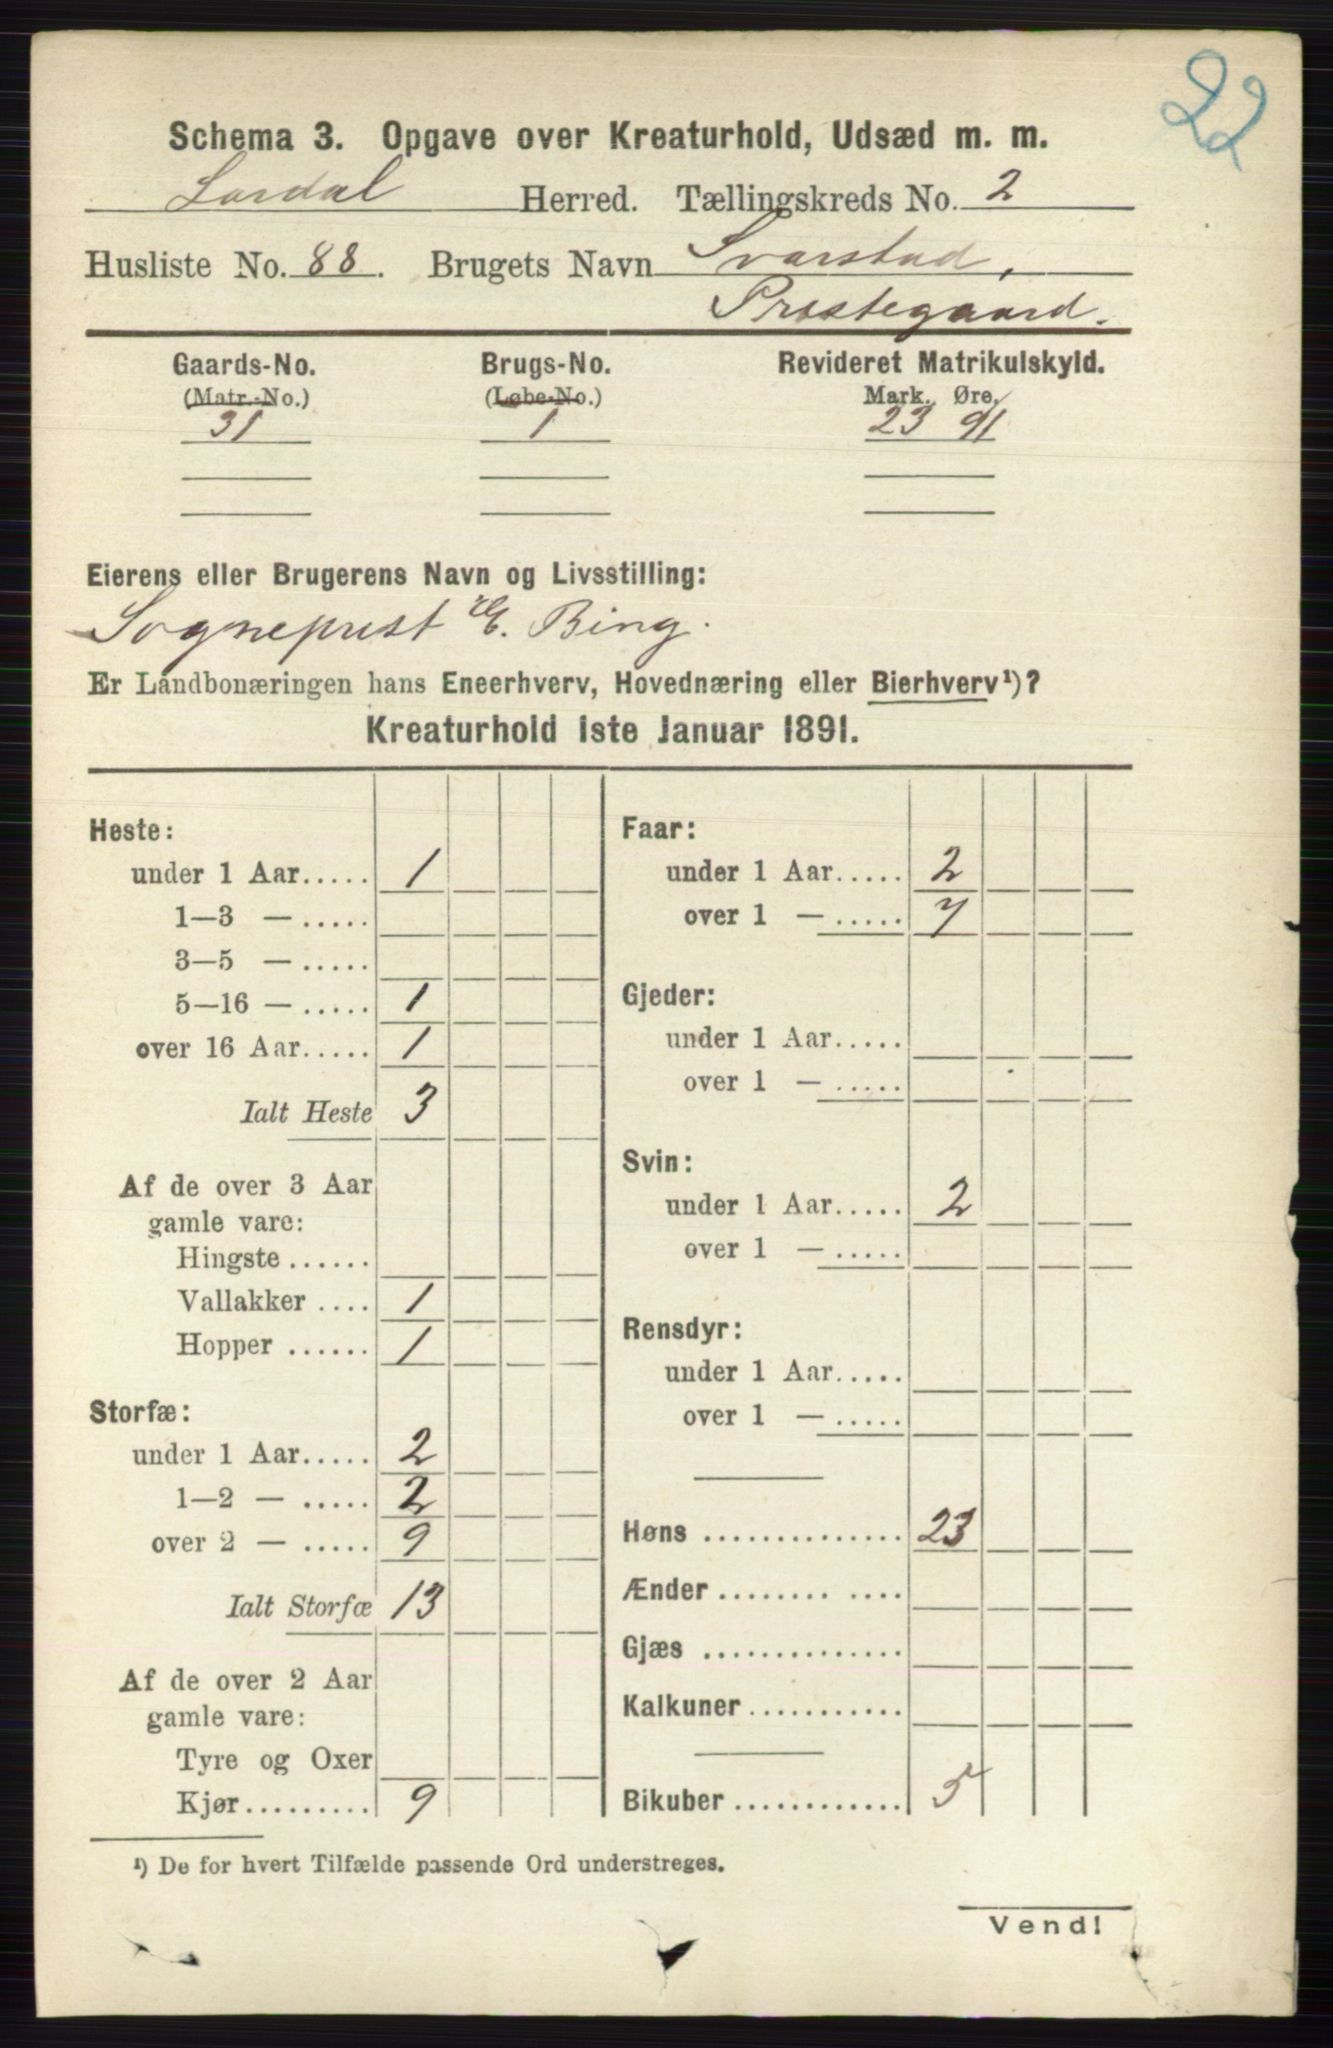 22
Schema 3. Opgave over Kreaturhold, Udsæd m. m.
Lardal Herred. Tællingskreds No. 2
Husliste No. 88. Brugets Navn Svarstad,
Præstegaard.
Gaards-No. Brugs-No. Revideret Matrikulskyld.
(Matr.-No.) (Løbe-No.) Mark. Øre.
31 1 23 91
Eierens eller Brugerens Navn og Livsstilling:
Sogneprest E. Bing.
Er Landbonæringen hans Eneerhverv, Hovednæring eller Bierhverv¹)?
Kreaturhold 1ste Januar 1891.
Heste:
under 1 Aar..... 1
1—3 — .....
3—5 — .....
5—16 — ..... 1
over 16 Aar..... 1
Ialt Heste 3
Af de over 3 Aar
gamle vare:
Hingste ......
Vallakker .... 1
Hopper ...... 1
Storfæ:
under 1 Aar..... 2
1—2 — ..... 2
over 2 — ..... 9
Ialt Storfæ 13
Af de over 2 Aar
gamle vare:
Tyre og Oxer
Kjør.......... 9
Faar:
under 1 Aar..... 2
over 1 — ..... 7
Gjeder:
under 1 Aar.....
over 1 — .....
Svin:
under 1 Aar..... 2
over 1 — .....
Rensdyr:
under 1 Aar.....
over 1 — .....
Høns .............. 23
Ænder ........ ....
Gjæs ..............
Kalkuner ...........
Bikuber ............. 5
¹) De for hvert Tilfælde passende Ord understreges.
Vend!